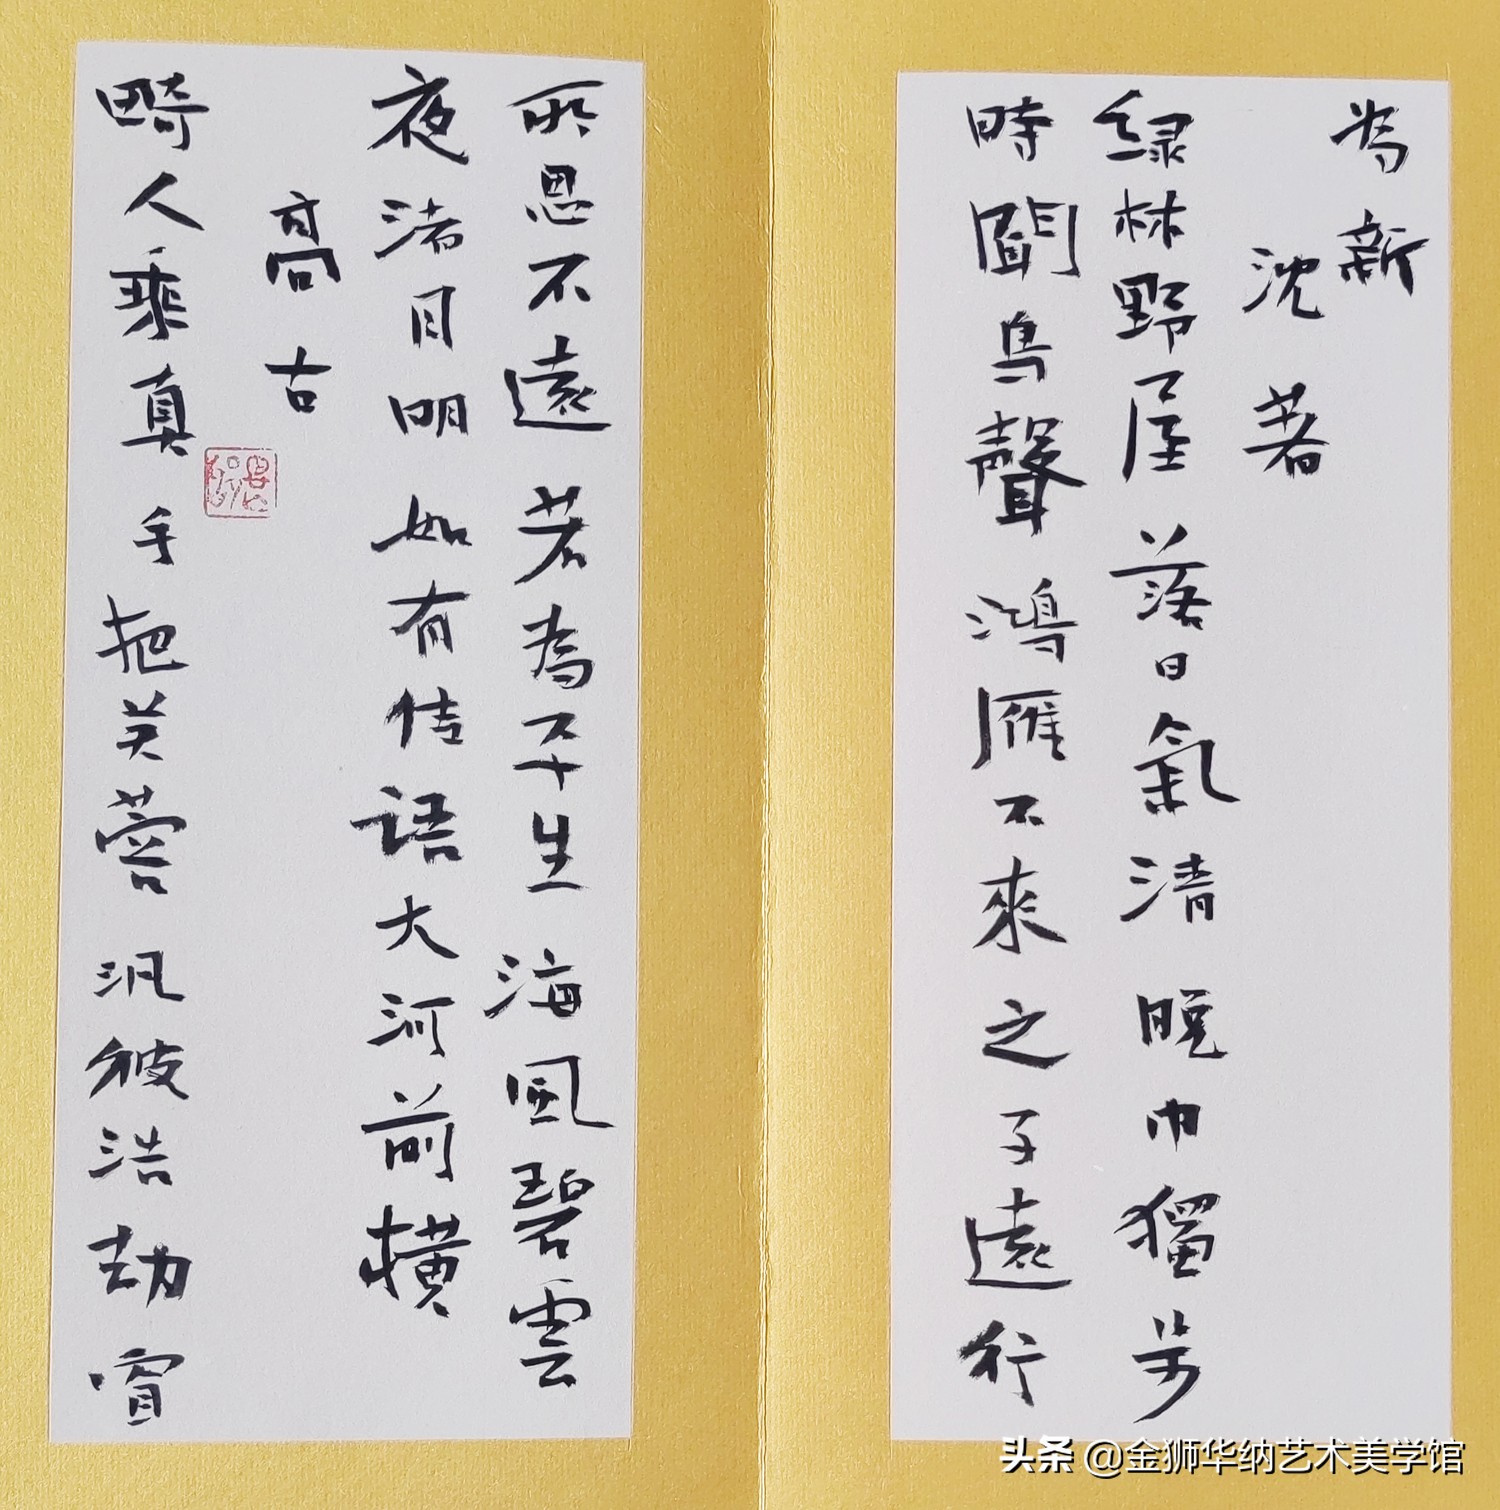 為新
沈著
綠林野屋落日氣清晚巾獨步
時聞鳥聲鴻雁不來之子遠行
所思不遠若為平生海風碧雲
夜渚月明如有佳語大河前橫
高古
畸人乘真手把芙蓉汎彼浩劫窅
头条 @金狮华纳艺术美学馆